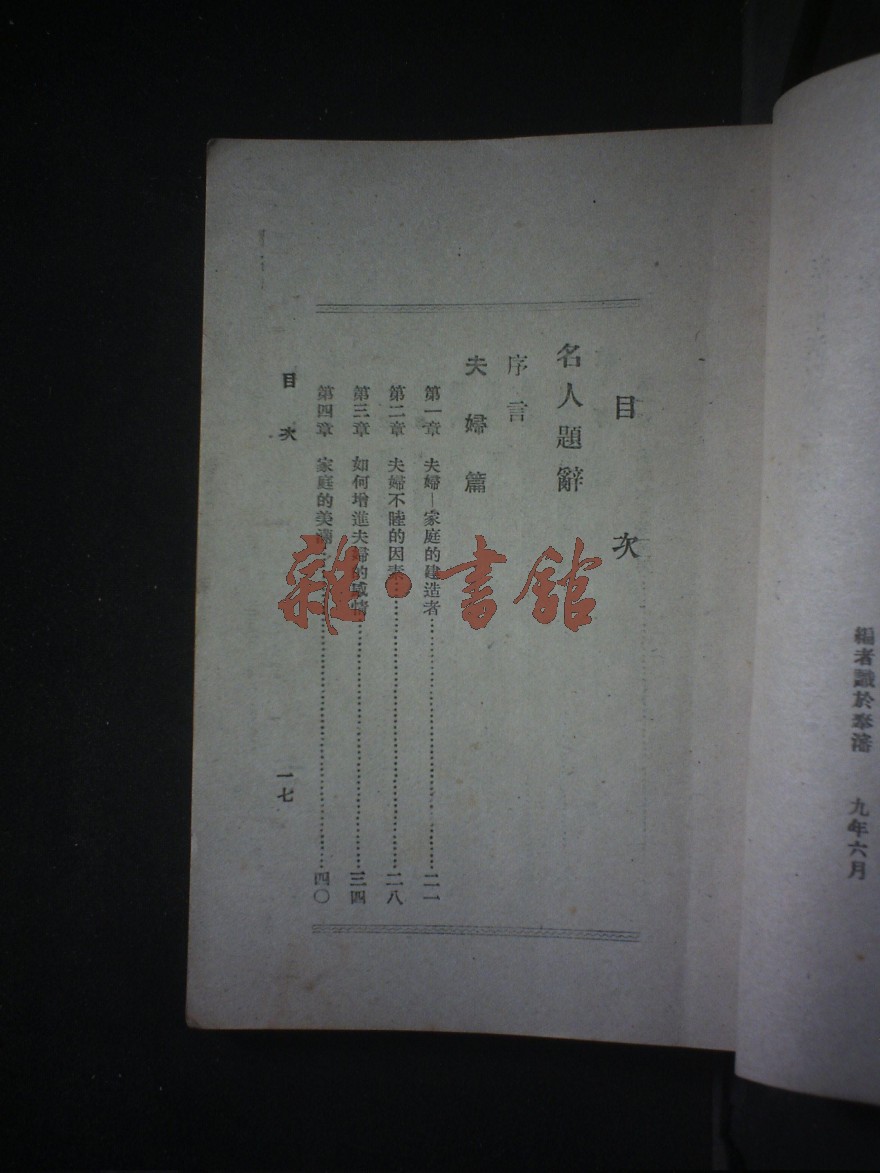 編者識於奉瀋 九年六月
目次
名人題辭
序言
夫婦篇
第一章 夫婦—家庭的建造者……二一
第二章 夫婦不睦的因素……二八
第三章 如何增進夫婦的感情……三四
第四章 家庭的美滿……四〇
目次 一七
雜·書館